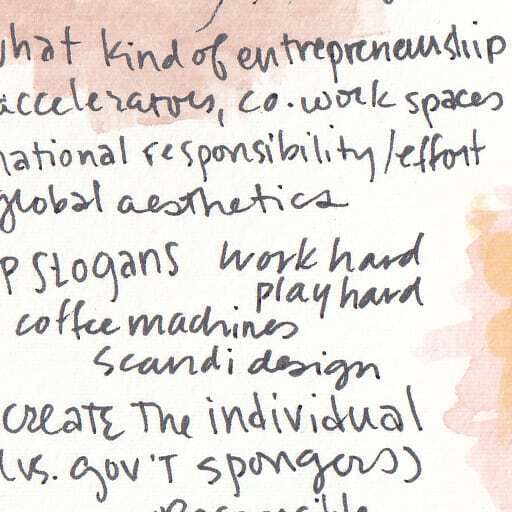 what kind of entrepreneurship
accelerators, co.work spaces
national responsibility/effort
global aesthetics
P SLOGANS work hard
play hard
coffee machines
scandi design
CREATE The individual
(vs. gov'T spongers)
Responsible